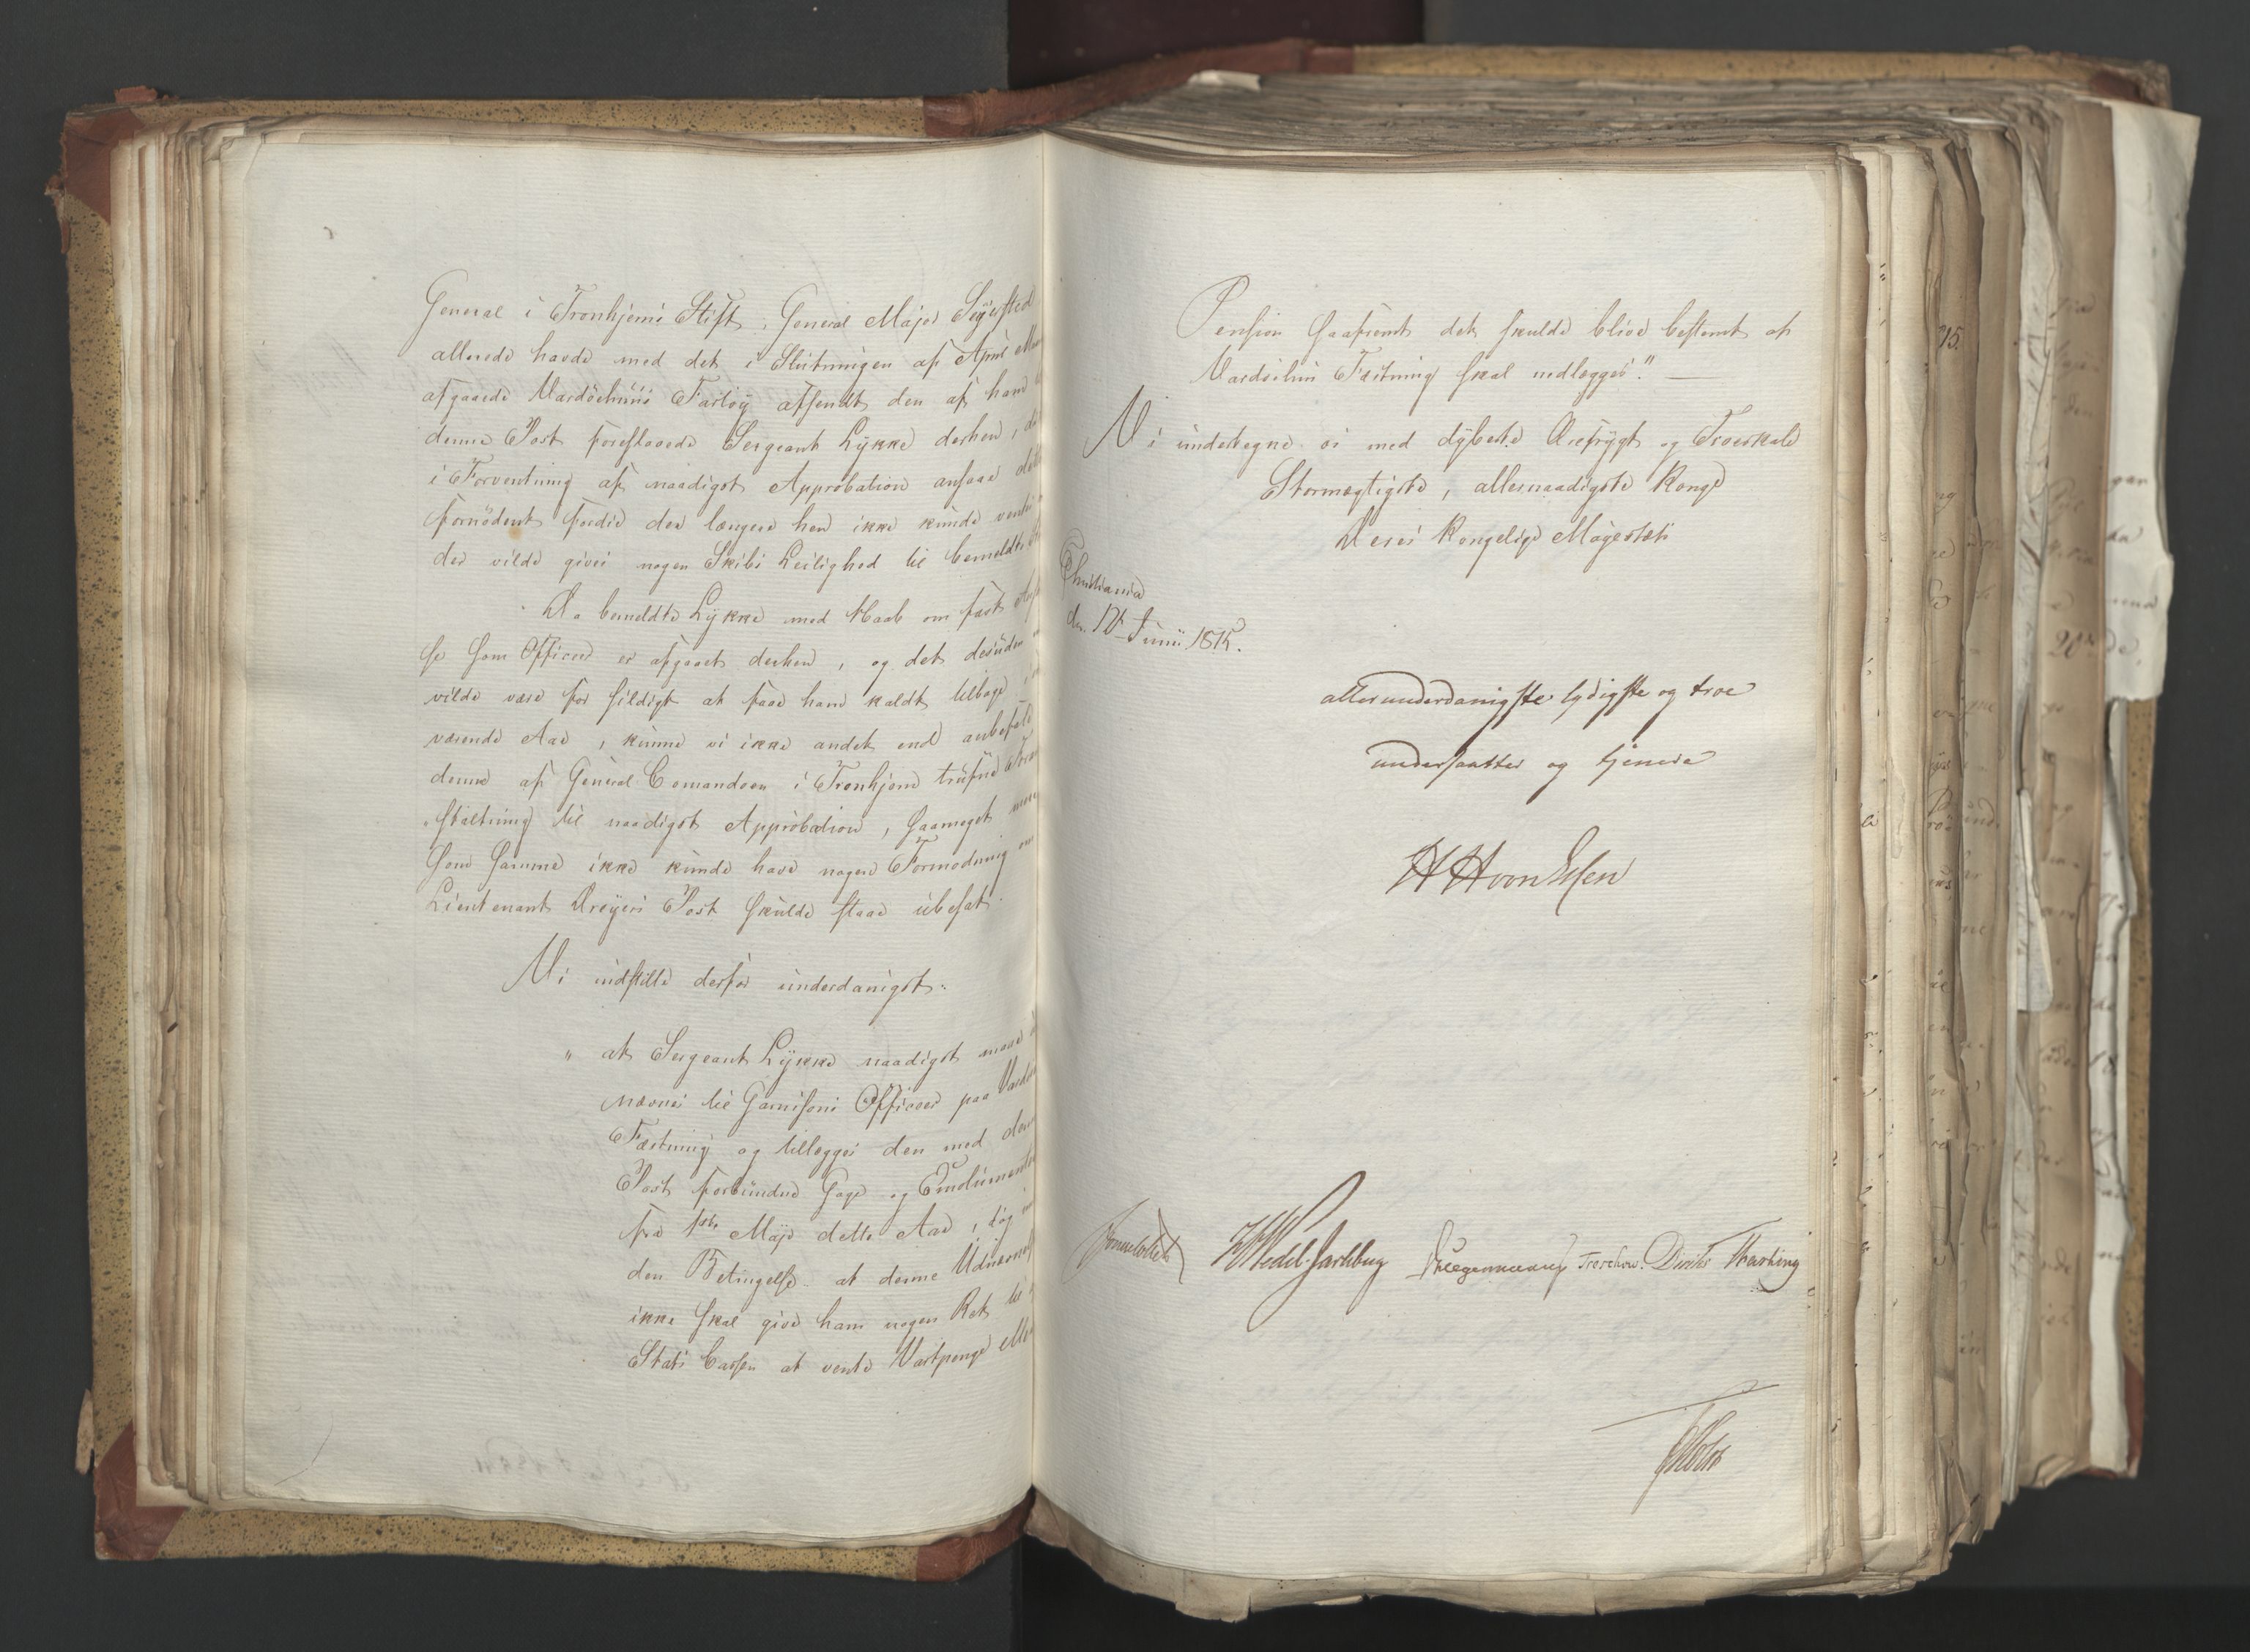 General i Tronhjems Stift, General Major Sejersted
allerede havde med det i Slutningen af April
afgaaede Vardöehuus Fartöy afsendt den af ham
denne Post foreslaaede Sergeant Lykke derhen,
i Forventning af naadigst Approbation ansaae
fornödent fordie der længere hen ikke kunde
der vilde gives nogen Skibs Leilighed til bemeldte
Da bemeldte Lykke med Haab om fast
se som Officeer er afgaaet derhen, og det desuden
vilde være for sildigt at faae ham kaldt tilbage
værende Aar, kunne vi ikke andet end anbefale
denne af General Comandoen i Tronhjem trufne
staltning til naadigst Approbation, saameget
som samme ikke kunde have nogen Formodning om
Lieutenant Dreyers Post skulde staae ubesat.
Vi indstille derfor underdanigst:
" at Sergeant Lykke naadigst maae
nævnes til Garnisons Officeer paa
Fæstning og tillægges den med
Post forbundne Gage og Emolumenter
fra 1ste Maji dette Aar, dog
den Betingelse at denne Udnævnelse
ikke skal give ham nogen Ret til
Stats Cassen at vente Vartpenge eller
Pension saafremt det skulde blive bestemt at
Vardöehuus Fæstning skal nedlægges". —
Vi undertegne os med dybeste Ærefrygt og Troeskab
Stormægtigste, allernaadigste Konge
Deres Kongelige Majestæts
Christiania
den 12te Junii 1815.
allerunderdanigste lydigste og troe
undersaatter og tjenere
HHvonEssen
Sommerhielm HWedel-Jarlsberg Hegermann Treschow. Diriks Fasting
Holst